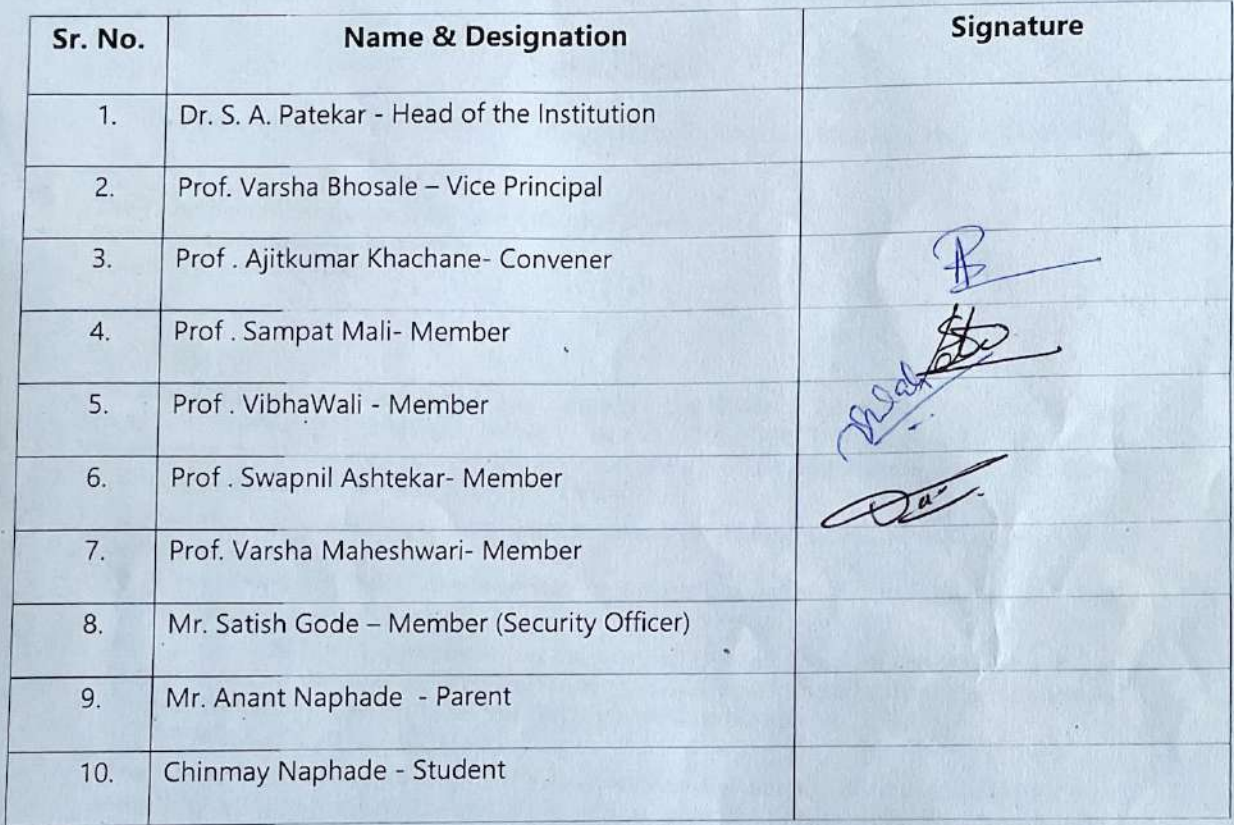 Sr. No. Name & Designation Signature
1. Dr. S. A. Patekar - Head of the Institution
2. Prof. Varsha Bhosale – Vice Principal
3. Prof . Ajitkumar Khachane- Convener
4. Prof . Sampat Mali- Member
5. Prof . VibhaWali - Member
6. Prof . Swapnil Ashtekar- Member
7. Prof. Varsha Maheshwari- Member
8. Mr. Satish Gode – Member (Security Officer)
9. Mr. Anant Naphade - Parent
10. Chinmay Naphade - Student